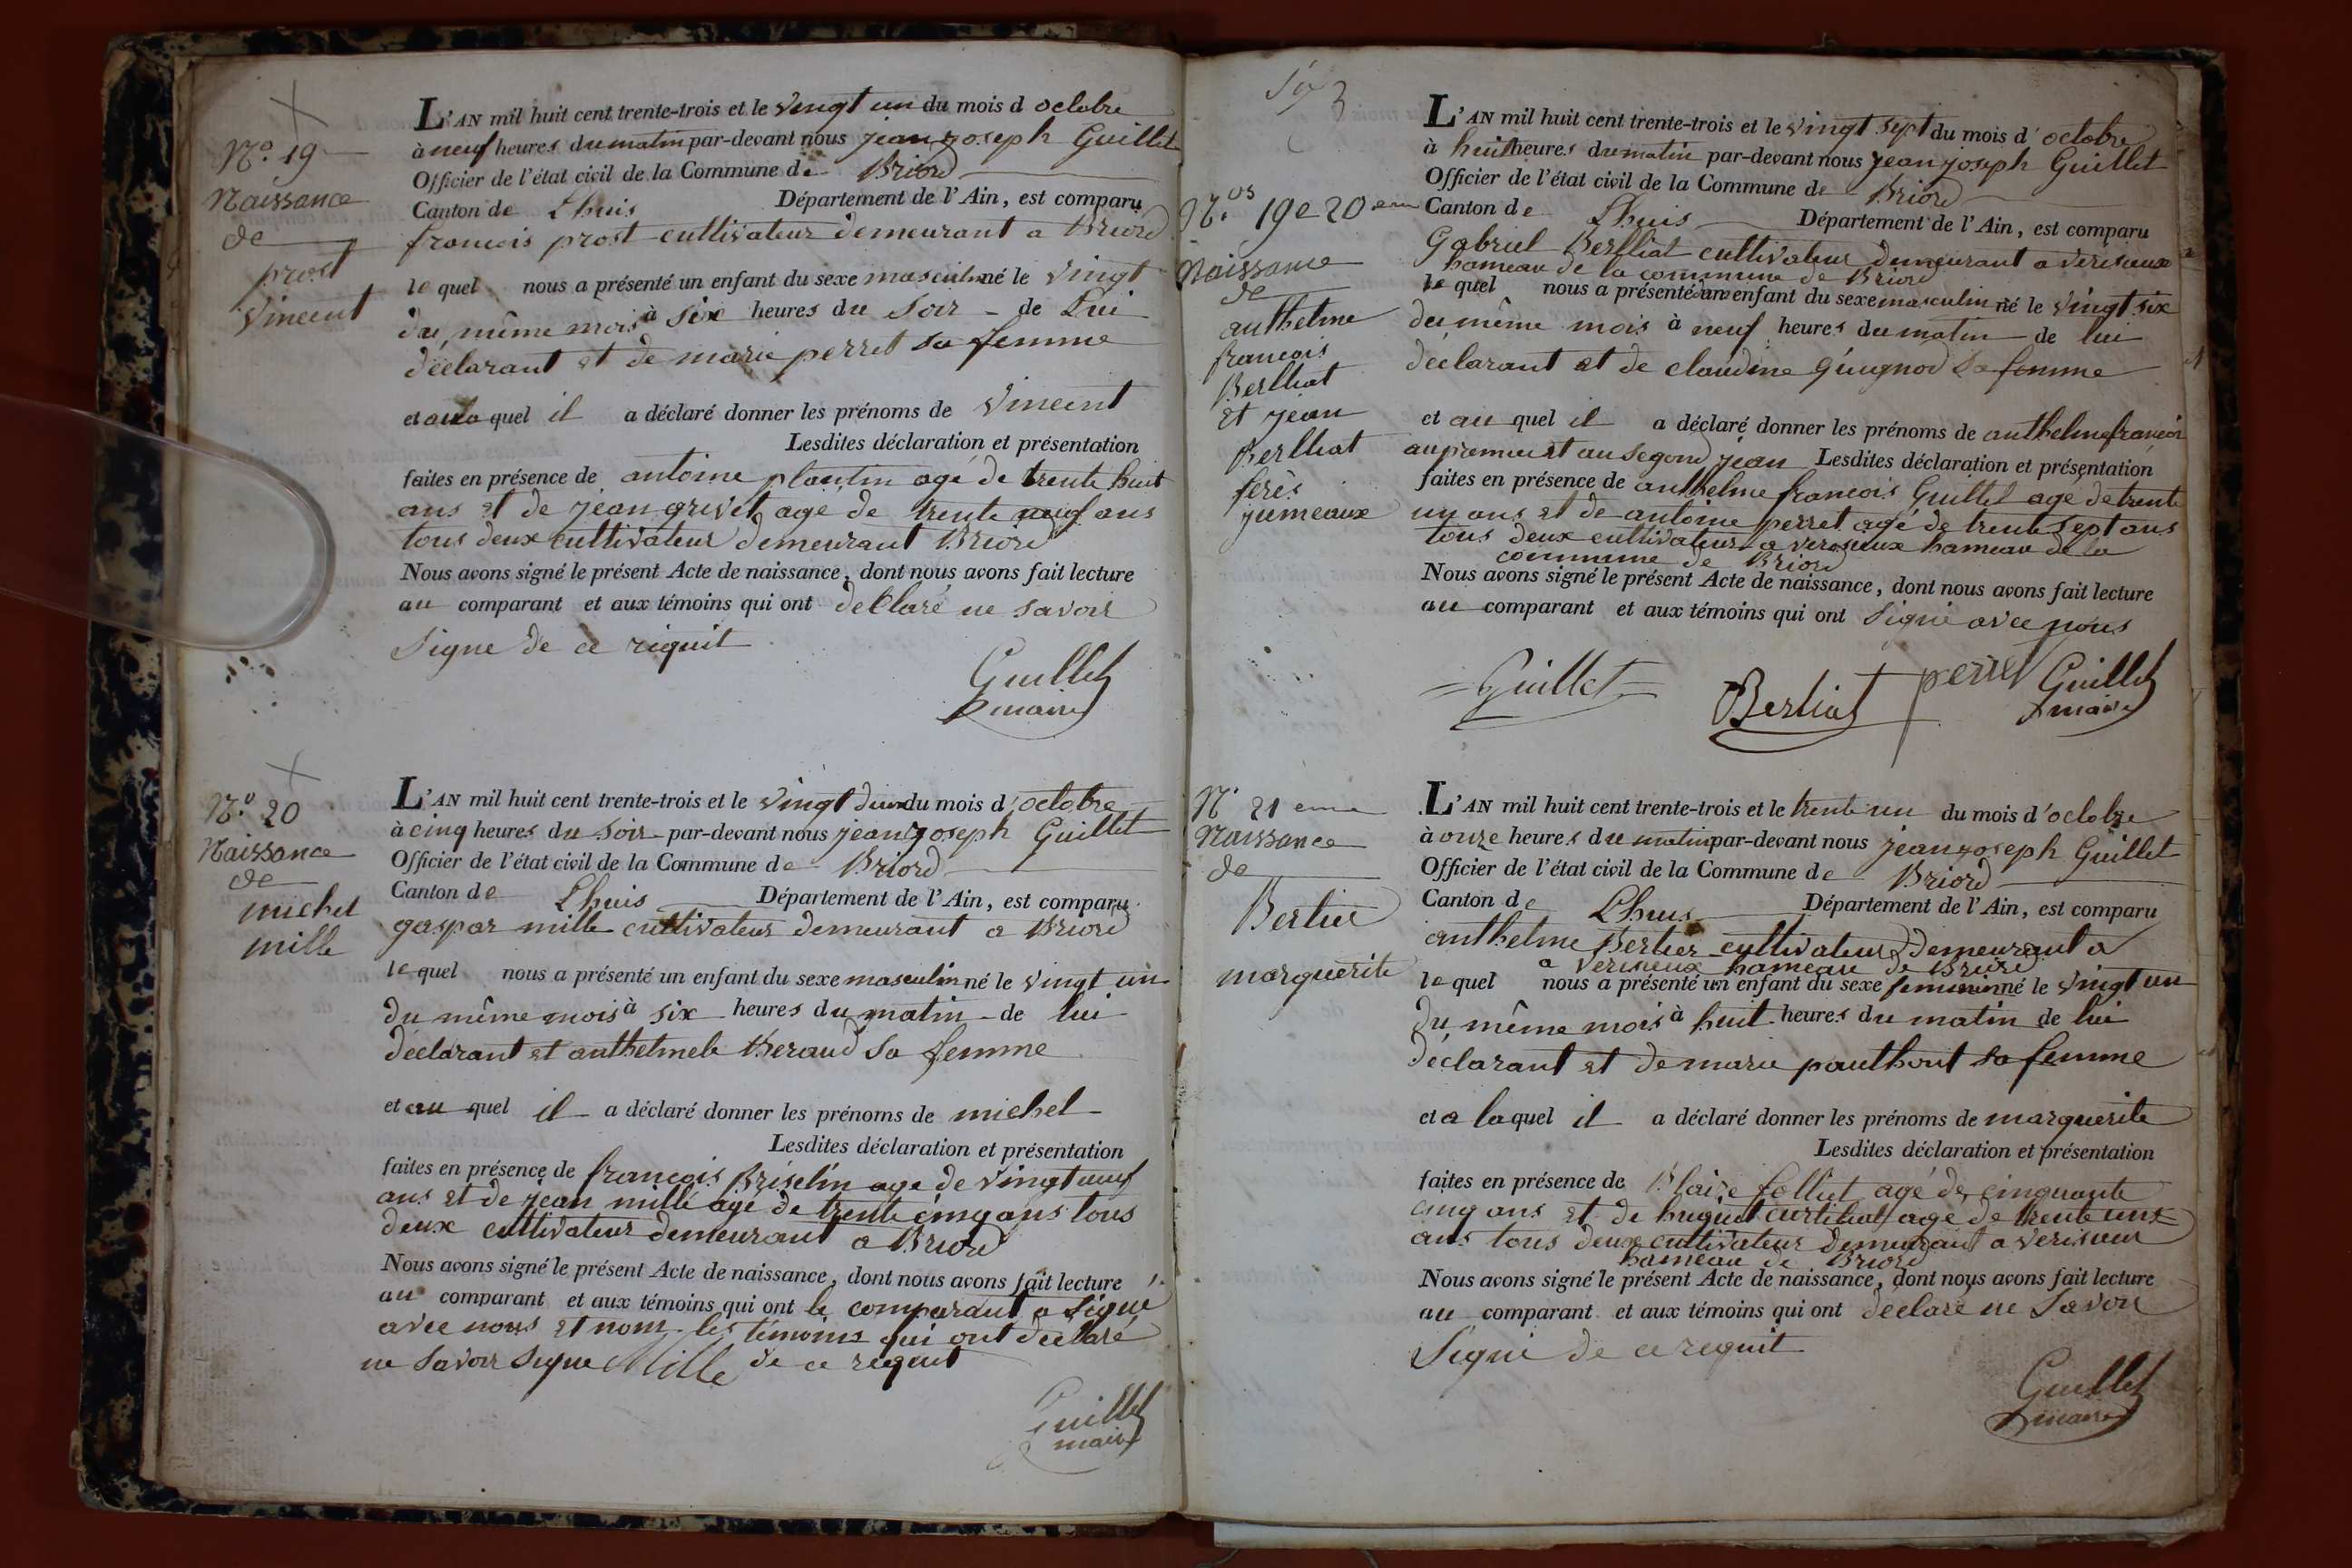 N.o 19
Naissance
de
prost
Vincent
L'AN mil huit cent trente-trois et le vingt un du mois d octobre
à neuf heures du matin par-devant nous jean joseph Guillet
Officier de l'état civil de la Commune de Briord
Canton de Lhuis Département de l'Ain, est comparu
francois prost cultivateur demeurant a Briord
le quel nous a présenté un enfant du sexe masculin né le vingt
du même mois à six heures du soir de Lui
déclarant et de marie perret sa femme
et quel il a déclaré donner les prénoms de Vincent
Lesdites déclaration et présentation
faites en présence de antoine plantin agé de trente huit
ans et de jean grivet age de trente neuf ans
tous deux cultivateur demeurant Briord
Nous avons signé le présent Acte de naissance, dont nous avons fait lecture
au comparant et aux témoins qui ont declaré ne savoir
signe de ce riquit
Guillet
maire
N.o 20
Naissance
de
michel
mille
L'AN mil huit cent trente-trois et le vingt deux du mois d octobre
à cinq heures du soir par-devant nous jean joseph Guillet
Officier de l'état civil de la Commune de Briord
Canton de Lhuis Département de l'Ain, est comparu
gaspar mille cultivateur demeurant a Briord
le quel nous a présenté un enfant du sexe masculin né le vingt un
du même mois à six heures du matin de lui
déclarant et anthelmele Beraud sa femme
et au quel il a déclaré donner les prénoms de michel
Lesdites déclaration et présentation
faites en présence de francois Briselin age de vingt neuf
ans et de jean mille agé de trente cinq ans tous
deux cultivateur demeurant a Briord
Nous avons signé le présent Acte de naissance, dont nous avons fait lecture
au comparant et aux témoins qui ont le comparant a signé
avec nous et nom les témoins qui ont déclaré
ne savoir signe Mille de ce requit
Guillet
maire
N.os 19 e 20 em
Naissance
de
anthelme
francois
Berlliat
et jean
Berlliat
ferès
jumeaux
L'AN mil huit cent trente-trois et le vingt sept du mois d'octobre
à huit heures du matin par-devant nous jean joseph Guillet
Officier de l'état civil de la Commune de Briord
Canton de Lhuis Département de l'Ain, est comparu
Gabriel Berlliat cultivateur demeurant a verisieux
hameau de la commune de Briord
le quel nous a présenté enfant du sexe masculin né le vingt six
du même mois à neuf heures du matin de lui
déclarant et de claudine guignod sa femme
et au quel il a déclaré donner les prénoms de anthelme francois
au premier et au segond jean Lesdites déclaration et présentation
faites en présence de anthelme francois Guillet age de trente
un ans et de antoine perret agé de trente sept ans
tous deux cultivateur a verisieux hameau de la
commune de Briord
Nous avons signé le présent Acte de naissance, dont nous avons fait lecture
au comparant et aux témoins qui ont signé avec nous
Guillet Berliat perret Guillet
maire
N.o 21 eme
Naissance
de
Bertier
marguerite
L'AN mil huit cent trente-trois et le trente un du mois d'octobre
à onze heures du matin par-devant nous jean joseph Guillet
Officier de l'état civil de la Commune de Briord
Canton de Lhuis Département de l'Ain, est comparu
anthelme Bertier cultivateur demeurant a
a verisieux hameau de Briord
le quel nous a présenté un enfant du sexe feminin né le vingt un
du même mois à huit heures du matin de lui
déclarant et de marie panthout sa femme
et a laquel il a déclaré donner les prénoms de marguerite
Lesdites déclaration et présentation
faites en présence de Blaise folliet agé de cinquante
cinq ans et de huguet curtilliat age de trente
ans tous deux cultivateur demeurant a verisieux
hameau de Briord
Nous avons signé le présent Acte de naissance, dont nous avons fait lecture
au comparant et aux témoins qui ont déclaré ne savoir
Signé de ce requit
Guillet
maire